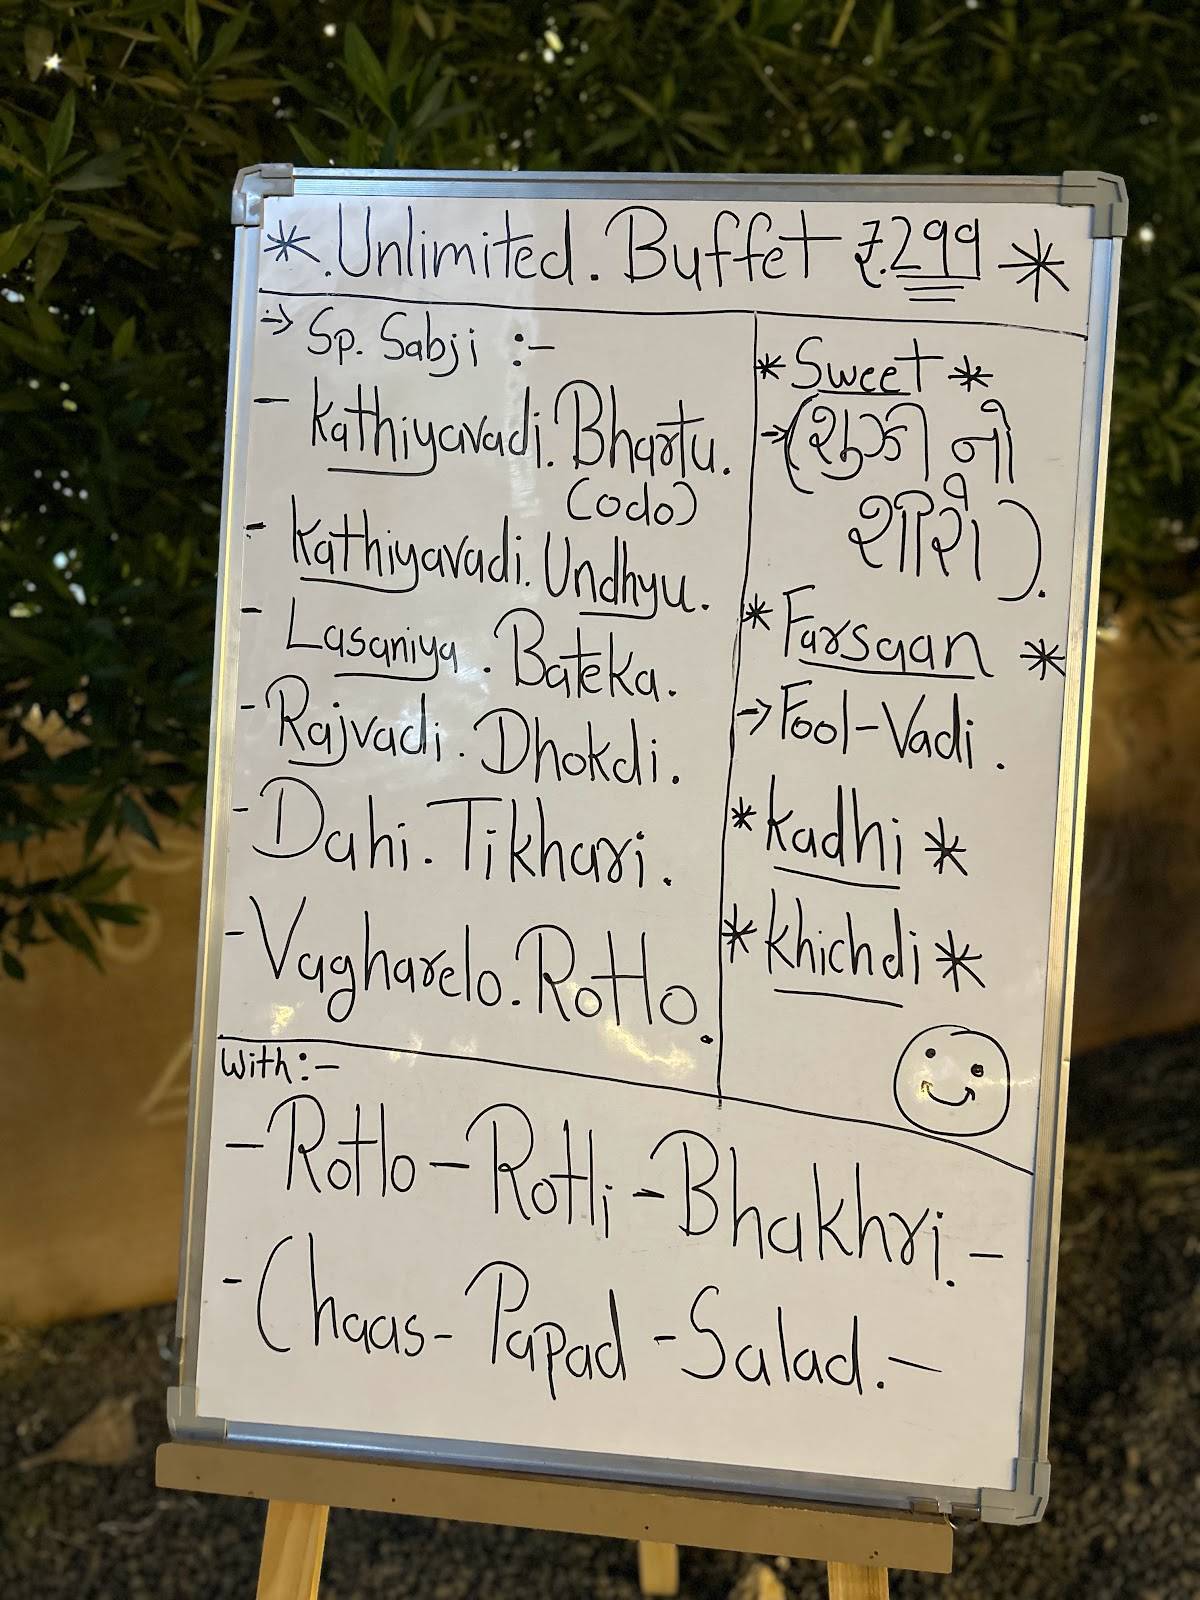 *.Unlimited.Buffet ₹.299*
→ Sp. Sabji :-
- Kathiyavadi.Bhartu.
(odo)
- Kathiyavadi.Undhyu.
- Lasaniya.Bateka.
- Rajvadi.Dhokdi.
- Dahi.Tikhari.
- Vagharelo.Rotlo.
* Sweet *
→(સુકી નો
શીરો).
* Farsaan *
→ Fool-Vadi.
* Kadhi *
* Khichdi *
With:-
- Rotlo - Rotli - Bhakhri.-
- Chaas - Papad - Salad.-